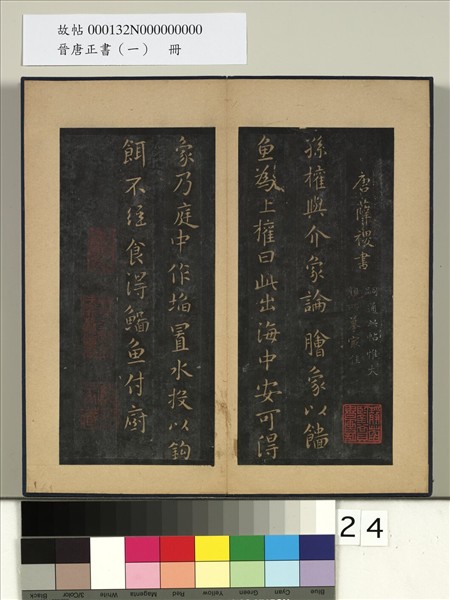 故帖 000132N000000000
晉唐正書（一） 冊
唐薛稷書
孫權與介象論鱠象以鯔
魚為上權曰此出海中安可得
象乃庭中作埳置水投以鉤
餌不經食得鯔魚付廚
24
Black
3/Color
White
Magenta
Red
Yellow
Green
Cyan
Blue